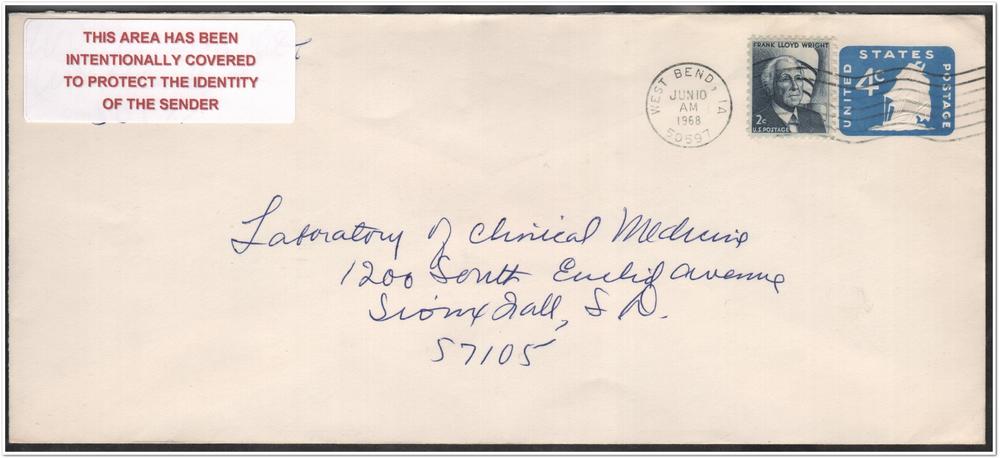 THIS AREA HAS BEEN
INTENTIONALLY COVERED
TO PROTECT THE IDENTITY
OF THE SENDER
WEST BEND, IA
JUN 10
AM
1968
50597
FRANK LLOYD WRIGHT
2c
U.S. POSTAGE
UNITED STATES POSTAGE
4c
Laboratory of Clinical Medicine
1200 South Euclid Avenue
Sioux Fall, S D.
57105